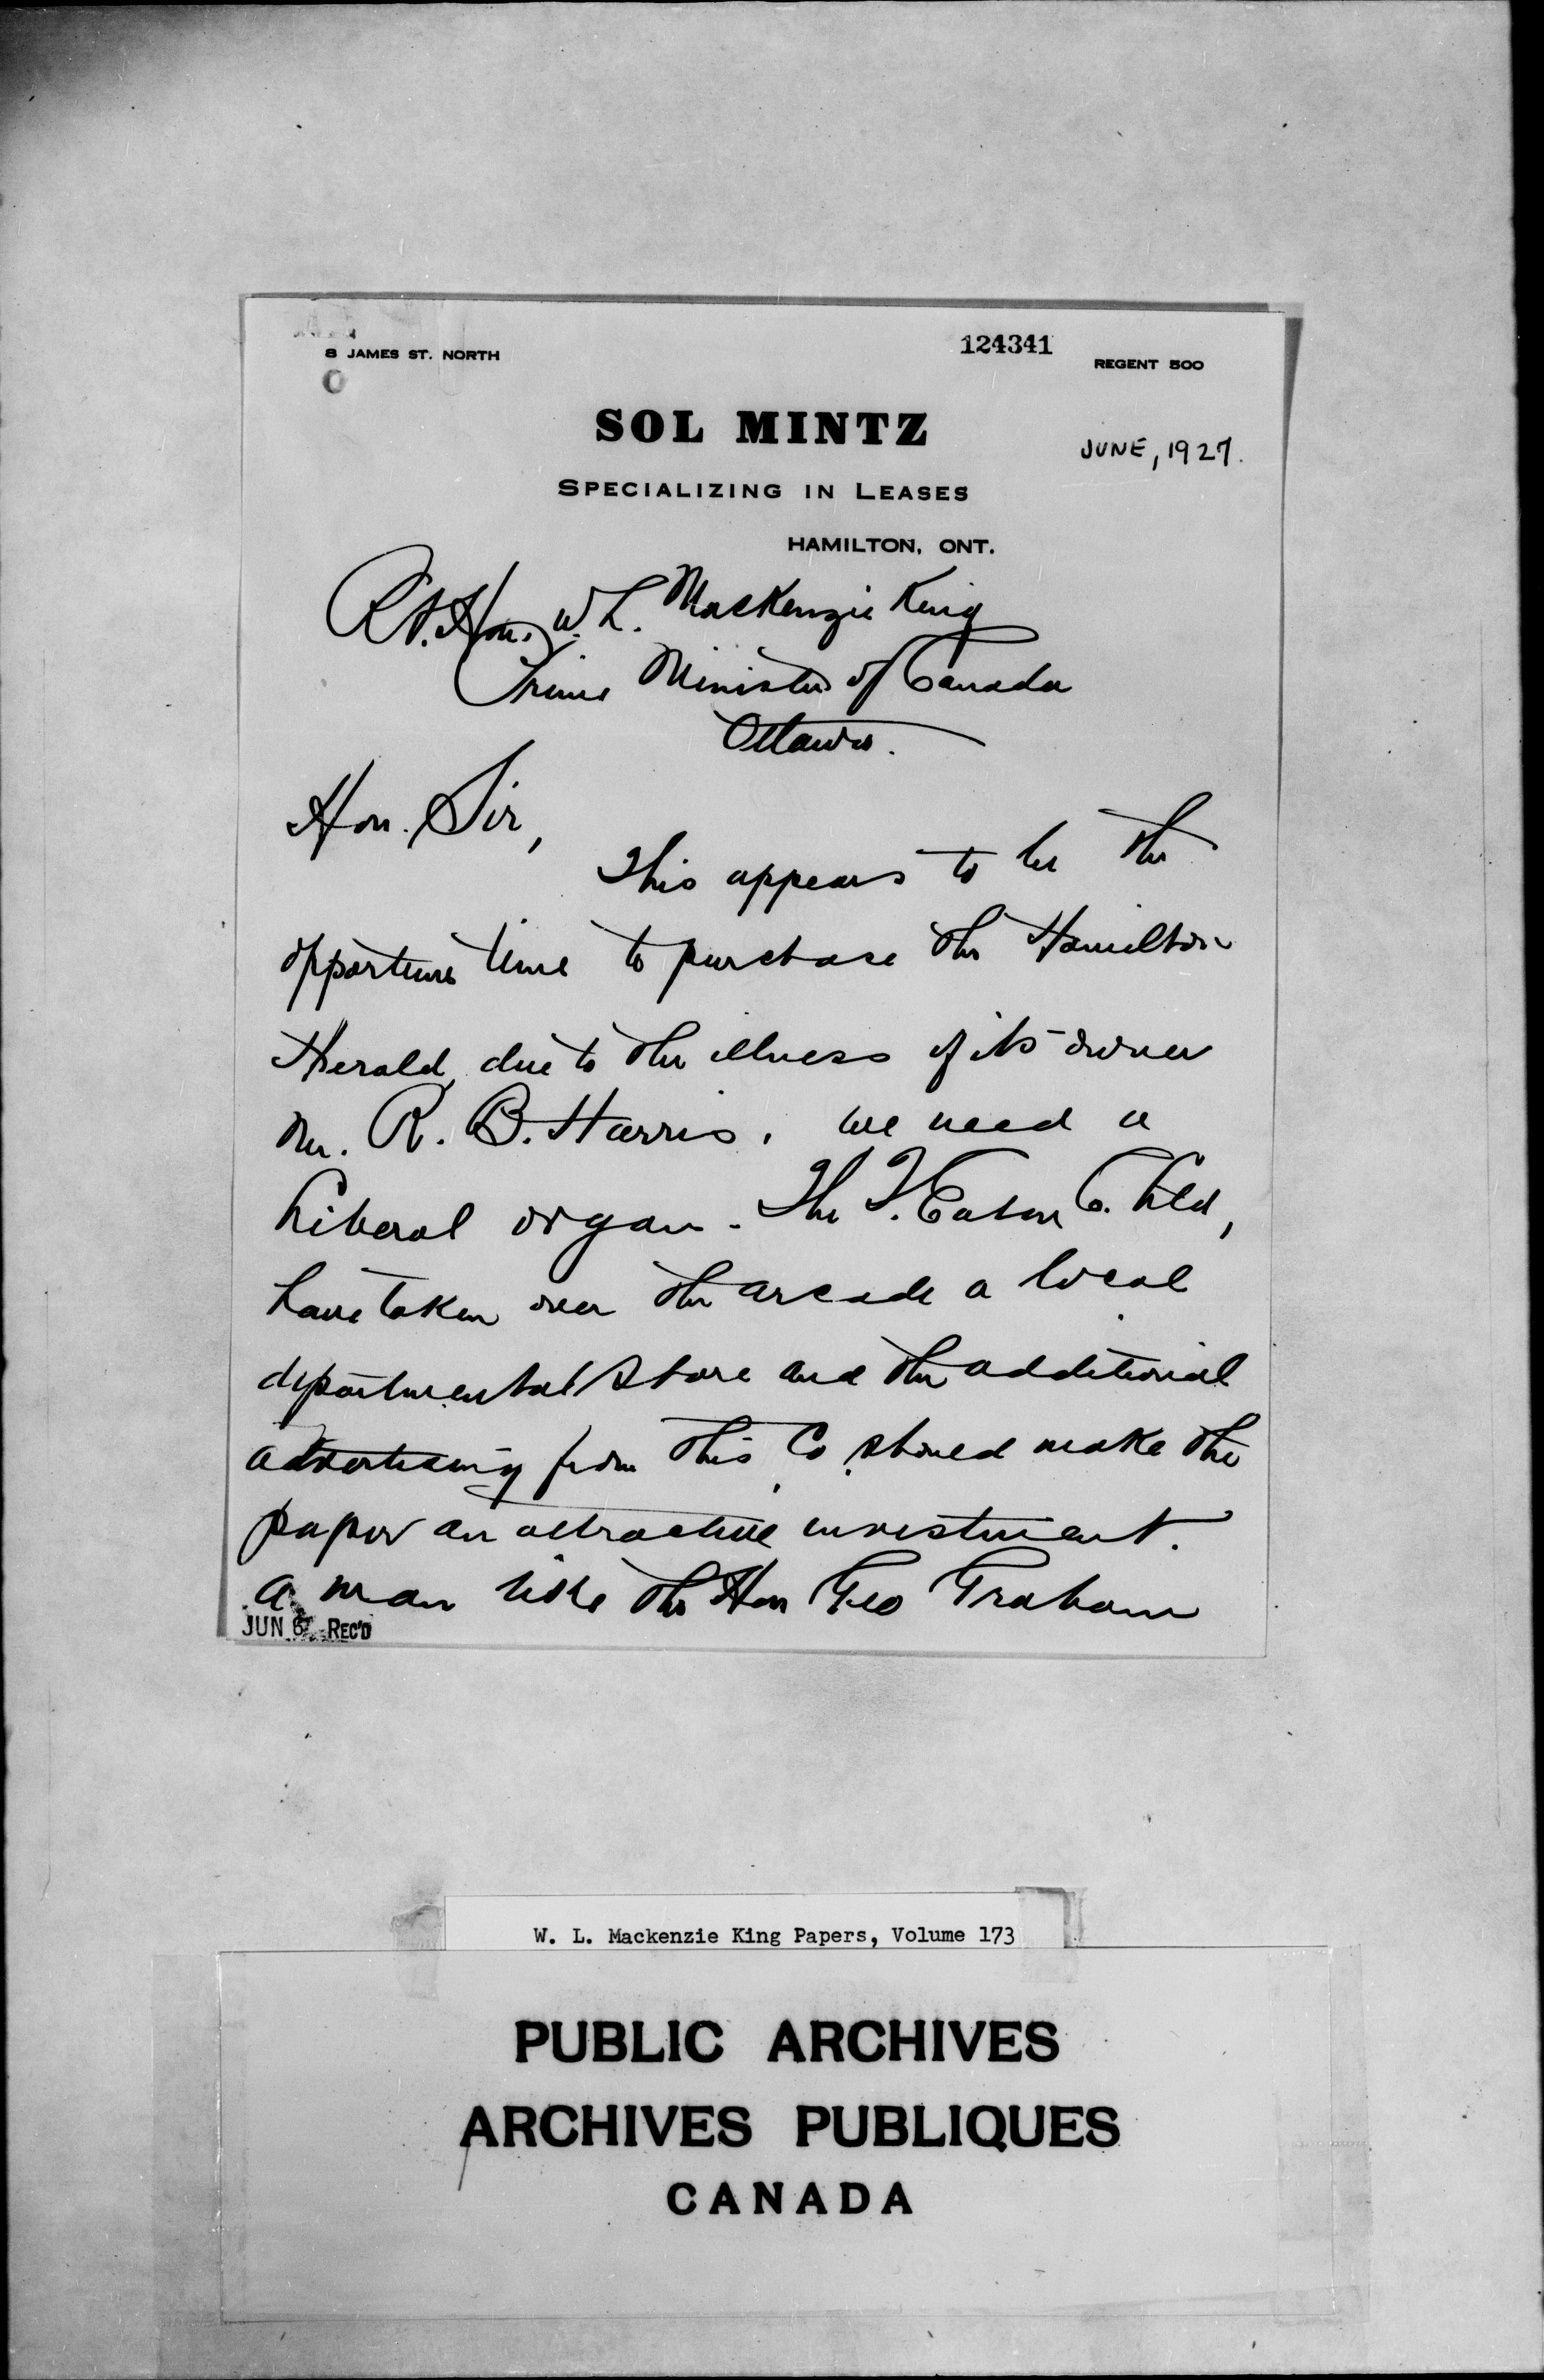 8 JAMES ST. NORTH
124341
REGENT 500
SOL MINTZ
JUNE, 1927.
SPECIALIZING IN LEASES
HAMILTON, ONT.
Rt. Hon. W. L. MacKenzie King
Prime Minister of Canada
Ottawa.
Hon. Sir,
This appears to be the
opportune time to purchase the Hamilton
Herald, due to the illness of its owner
Mr. R. B. Harris. We need a
Liberal organ. The T. Eaton Co. Ltd,
have taken over the arcade a local
departmental store and the additional
advertising from this Co. should make the
paper an attractive investment.
A man like the Hon Geo Graham
JUN REC'D
W. L. Mackenzie King Papers, Volume 173
PUBLIC ARCHIVES
ARCHIVES PUBLIQUES
CANADA